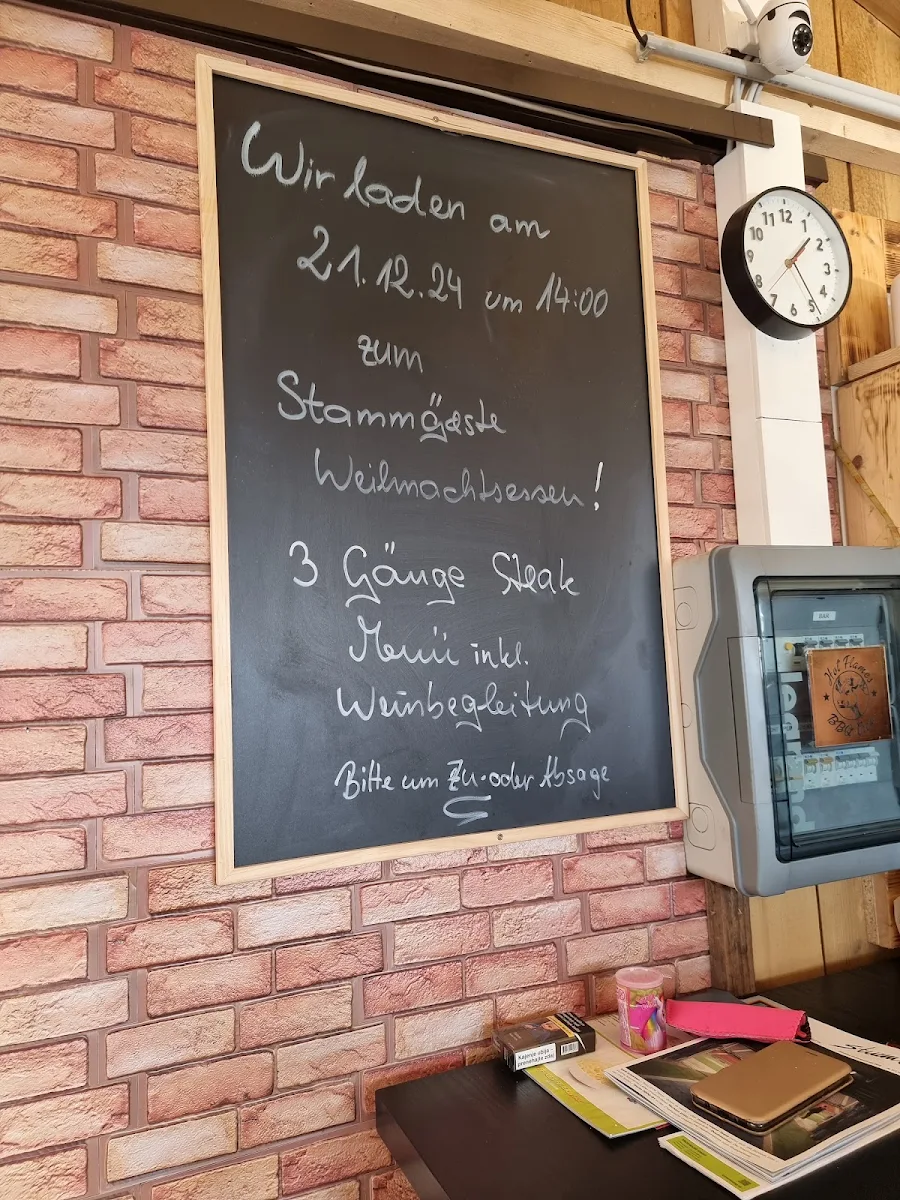 Wir laden am
21.12.24 um 14:00
zum
Stammgäste
Weihnachtsessen!
3 Gänge Steak
Menü inkl.
Weinbegleitung
Bitte um Zu-oder Absage
12
1
2
3
4
5
6
7
8
9
10
11
Hot Flames
BBQ
Kajenje ubija -
prenehajte zdaj